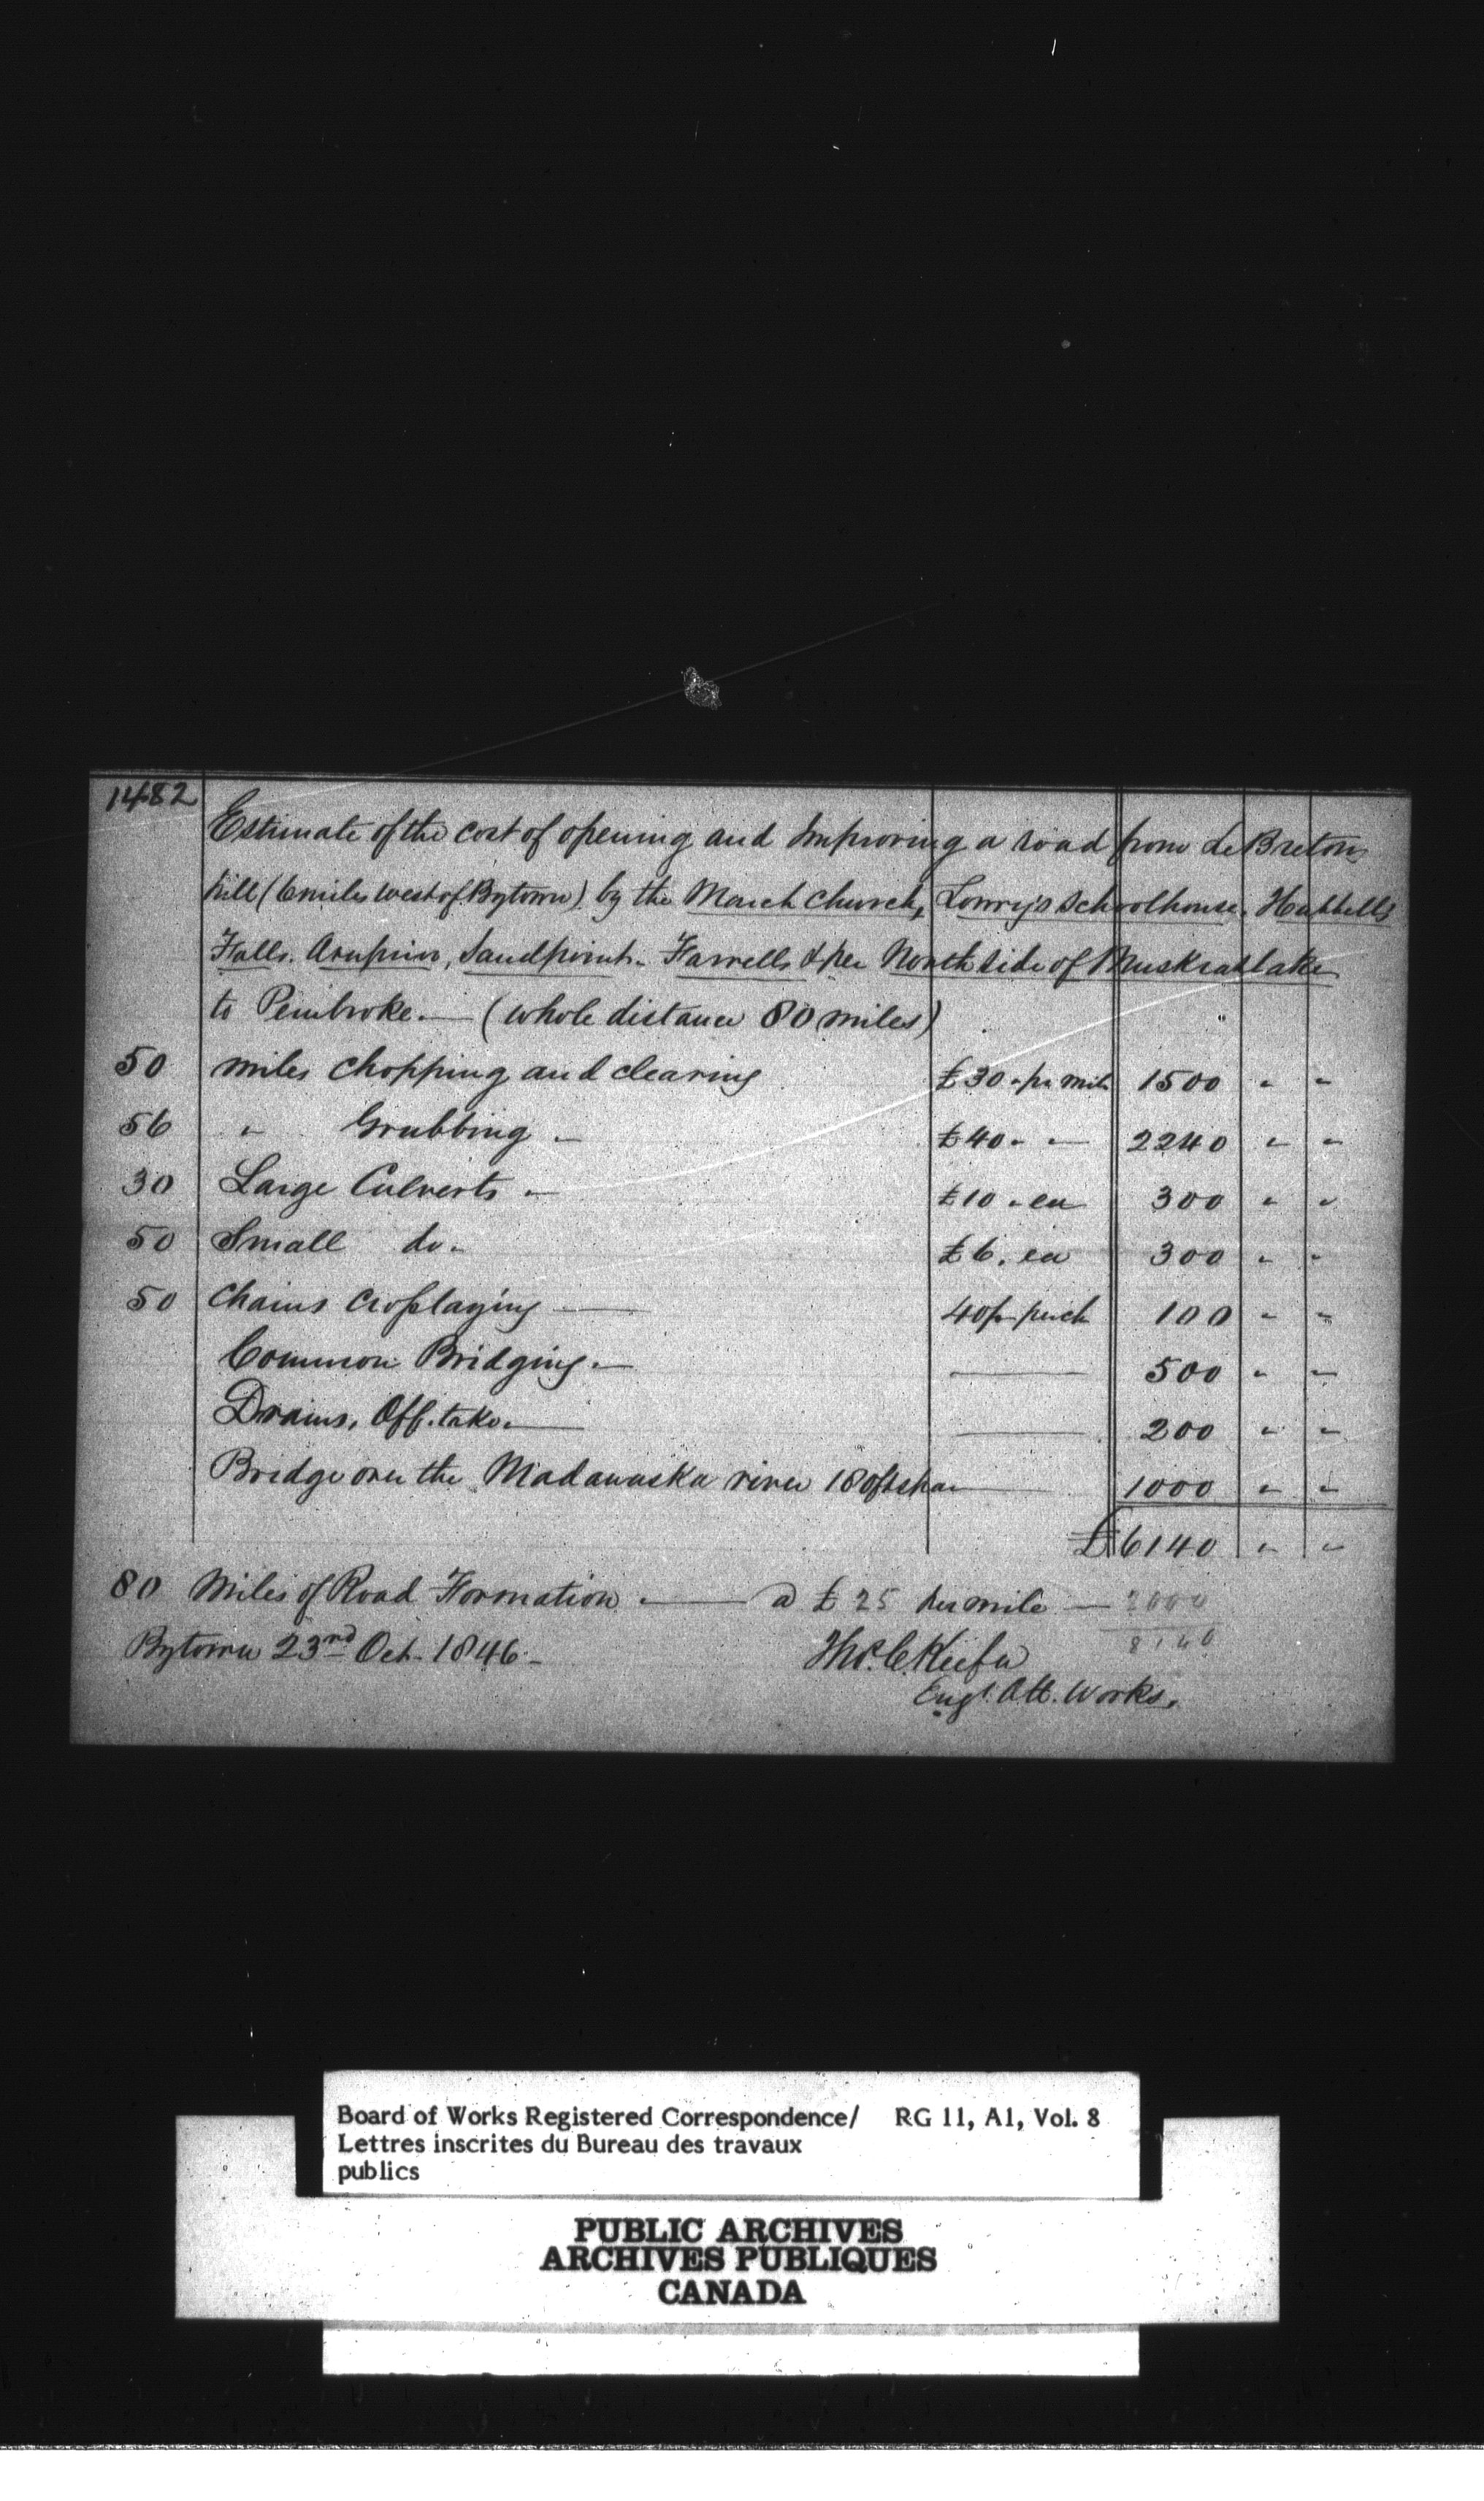 1482
Estimate of the cost of opening and Improving a road from Le Bretons
hill (6 miles west of Bytown) by the March Church, Lowry's Schoolhouse, Hubbells
Falls. Arnprior, Sandpoint. Farrells & per North side of Muskrat lake
to Pembroke. — (whole distance 80 miles)
50 miles chopping and clearing £30 - pr mile 1500 " "
56 " Grubbing - £40 - - 2240 " "
30 Large Culverts - £10 - ea 300 " "
50 Small do. £6. ea 300 " "
50 Chains Crosslaying — 100 " "
Common Bridging. — 500 " "
Drains, Off-take. — 200 " "
Bridge over the Madawaska river 180 ft span 1000 " "
£6140 " "
80 Miles of Road Formation. — a £ 25 per mile — 2000
8140
Bytown 23rd Oct. 1846 - Thos. C. Keefer
Engr. Ott. Works.
Board of Works Registered Correspondence/ RG 11, A1, Vol. 8
Lettres inscrites du Bureau des travaux
publics
PUBLIC ARCHIVES
ARCHIVES PUBLIQUES
CANADA